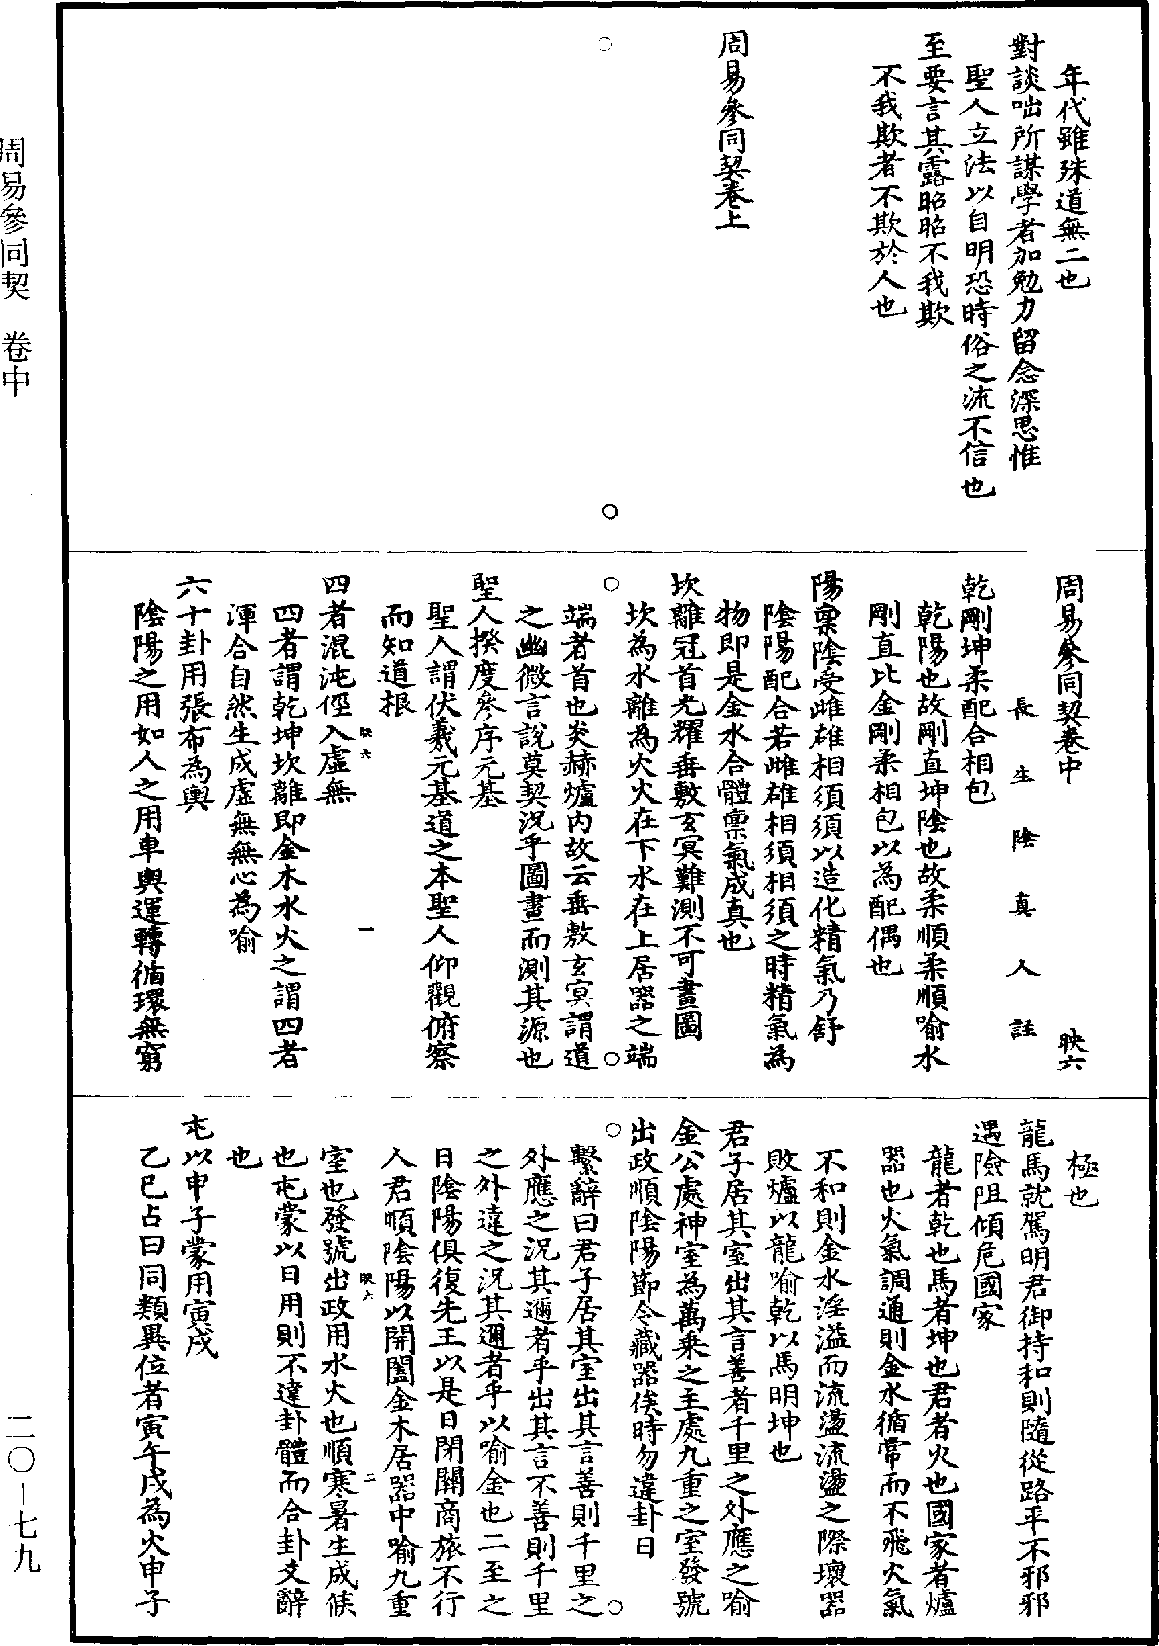 年代雖殊道無二也
對談咄所謀學者加勉力留念深思惟
聖人立法以自明恐時俗之流不信也
至要言甚露昭昭不我欺
不我欺者不欺於人也
周易參同契卷上
周易參同契卷中
映六
長生陰真人註
乾剛坤柔配合相包
乾陽也故剛直坤陰也故柔順柔順喻水
剛直比金剛柔相包以為配偶也
陽稟陰受雌雄相須須以造化精氣乃舒
陰陽配合若雌雄相須相須之時精氣為
物即是金水合體稟氣成真也
坎離冠首光耀垂敷玄冥難測不可畫圖
坎為水離為火火在下水在上居器之端
端者首也炎赫爐內故云垂敷玄冥謂道
之幽微言說莫契況乎圖畫而測其源也
聖人揆度參序元基
聖人謂伏羲元基道之本聖人仰觀俯察
而知道根
映六
一
四者混沌徑入虛無
四者謂乾坤坎離即金木水火之謂四者
渾合自然生成虛無無心為喻
六十卦用張布為輿
陰陽之用如人之用車輿運轉循環無窮
極也
龍馬就駕明君御持和則隨從路平不邪邪
遇險阻傾危國家
龍者乾也馬者坤也君者火也國家者爐
器也火氣調通則金水循常而不飛火氣
不和則金水淫溢而流盪流盪之際壞器
敗爐以龍喻乾以馬明坤也
君子居其室出其言善者千里之外應之喻
金公處神室為萬乘之主處九重之室發號
出政順陰陽節令藏器俟時勿違卦日
繫辭曰君子居其室出其言善則千里之
外應之況其邇者乎出其言不善則千里
之外違之況其邇者乎以喻金也二至之
日陰陽俱復先王以是日閉關商旅不行
人君順陰陽以開闔金木居器中喻九重
映六
二
室也發號出政用水火也順寒暑生成候
也屯蒙以日用則不違卦體而合卦爻辭
也
屯以申子蒙用寅戌
乙巳占曰同類異位者寅午戌為火申子
周易參同契 卷中
二〇－七九